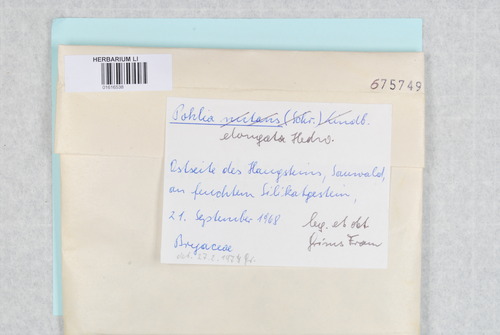 HERBARIUM LI
675749
Pohlia nutans (Schr.) Lindb.
elongata Hedw.
Ostseite des Haugsteins, Sauwald,
an feuchtem Silikatgestein,
21. September 1968
leg. et det
Grims Franz
Bryaceae
det. 27.2.1978 Gr.